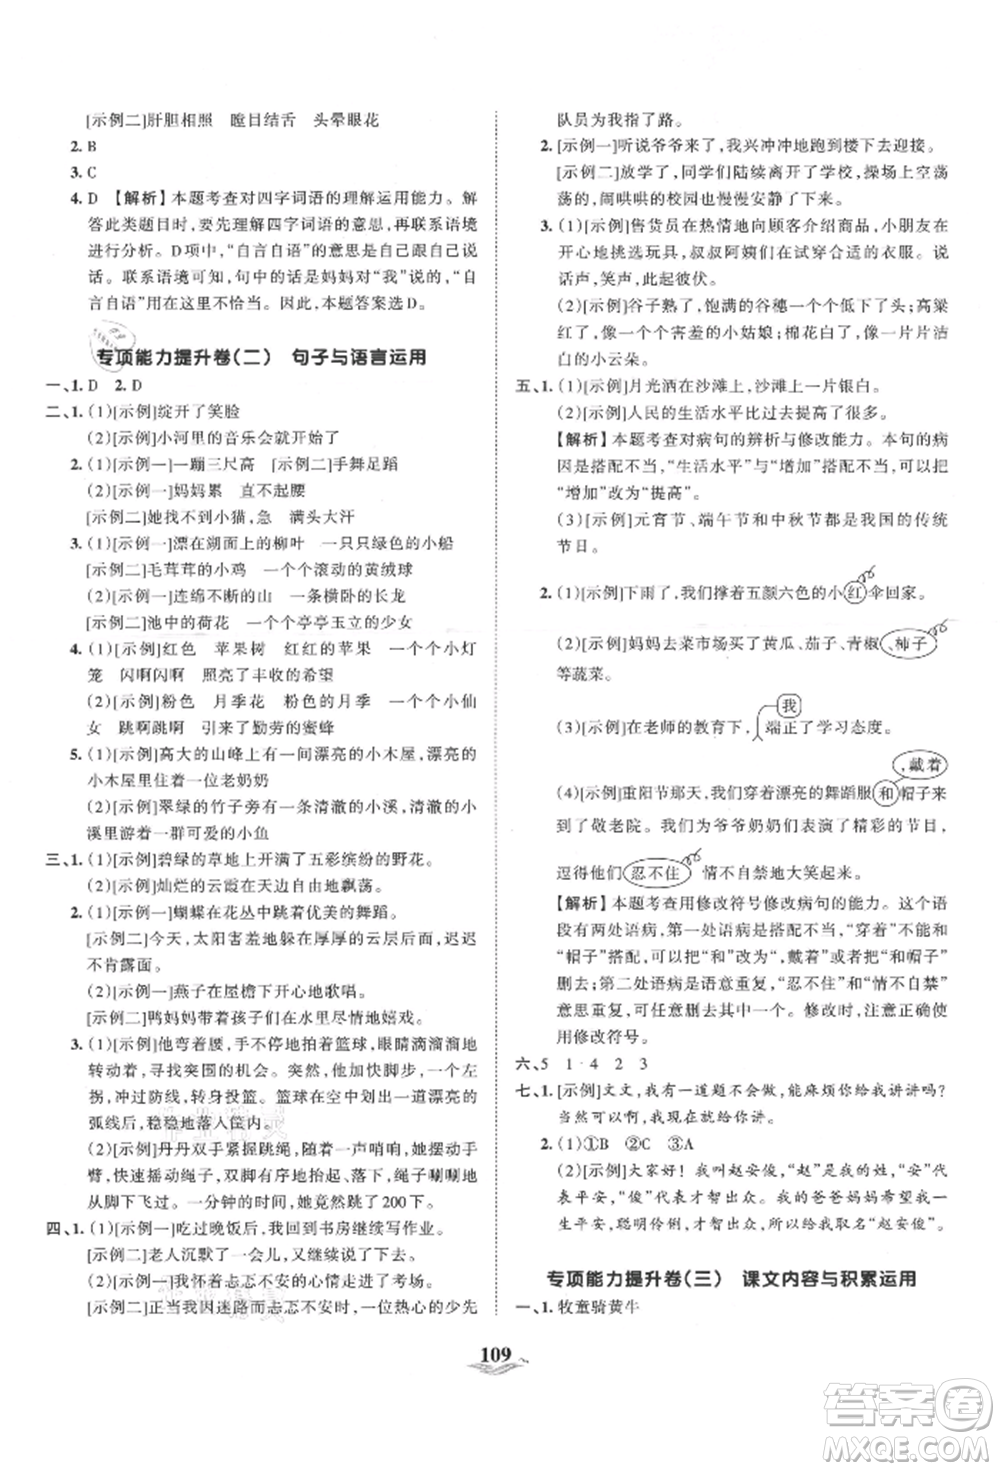 [示例二]肝胆相照　瞠目结舌　头晕眼花
2. B
3. C
4. D 【解析】本题考查对四字词语的理解运用能力。解
答此类题目时,要先理解四字词语的意思,再联系语境
进行分析。D项中,“自言自语”的意思是自己跟自己说
话。联系语境可知,句中的话是妈妈对“我”说的,“自
言自语”用在这里不恰当。因此,本题答案选D。
专项能力提升卷(二)　句子与语言运用
一、1. D　2. D
二、1. (1)[示例]绽开了笑脸
(2)[示例]小河里的音乐会就开始了
2. (1)[示例一]一蹦三尺高　[示例二]手舞足蹈
(2)[示例一]妈妈累　直不起腰
[示例二]她找不到小猫,急　满头大汗
3. (1)[示例一]漂在湖面上的柳叶　一只只绿色的小船
[示例二]毛茸茸的小鸡　一个个滚动的黄绒球
(2)[示例一]连绵不断的山　一条横卧的长龙
[示例二]池中的荷花　一个个亭亭玉立的少女
4. (1)[示例]红色　苹果树　红红的苹果　一个个小灯
笼　闪啊闪啊　照亮了丰收的希望
(2)[示例]粉色　月季花　粉色的月季　一个个小仙
女　跳啊跳啊　引来了勤劳的蜜蜂
5. (1)[示例]高大的山峰上有一间漂亮的小木屋,漂亮的
小木屋里住着一位老奶奶
(2)[示例]翠绿的竹子旁有一条清澈的小溪,清澈的小
溪里有一群可爱的小鱼
三、1. (1)[示例]碧绿的草地上开满了五彩缤纷的野花。
(2)[示例]灿烂的云霞在天边自由地飘荡。
2. (1)[示例一]蝴蝶在花丛中跳着优美的舞蹈。
[示例二]今天,太阳害羞地躲在厚厚的云层后面,迟迟
不肯露面。
(2)[示例一]燕子在屋檐下开心地歌唱。
[示例二]鸭妈妈带着孩子们在水里尽情地嬉戏。
3. (1)[示例]他弯着腰,手里不停地拍着篮球,眼睛溜溜地
转动着,寻找投篮的机会。只见他脚步一停,双手抱球,
转身、举手、投篮。篮球在空中划过一道漂亮的
弧线后,稳稳地落入筐内。
(2)[示例]丹丹双手紧握跳绳,一声哨响,她摆动着手
臂,快速摇着绳子,双脚有节奏地起落,绳子唰唰地
从脚下飞过。一分钟的时间,她竟然跳了200下。
四、1. (1)[示例一]吃过晚饭后,我回到书房继续写作业。
[示例二]老人沉默了一会儿,又继续说下去。
(2)[示例一]他怀着忐忑不安的心情走进了考场。
[示例二]正当我因迷路而忐忑不安时,一位热心的少先
队员为我指了路。
2. [示例一]听说爷爷来了,我兴冲冲地跑到楼下迎接。
[示例二]放学了,同学们陆续离开了学校,操场上空荡
荡的,闹哄哄的校园也慢慢安静了下来。
3. (1)[示例]售货员在热情地向顾客介绍商品,小朋友在
开心地挑选玩具,叔叔阿姨们在试穿合适的衣服。说
话声,笑声,此起彼伏。
(2)[示例]谷子熟了,饱满的谷穗压弯了枝头;高粱
红了,如一个个害羞的小姑娘;棉花白了,像一片片洁白
的小云朵。
五、1. (1)[示例]月光洒在沙滩上,沙滩上一片银白。
(2)[示例]人民的生活水平比过去提高了很多。
【解析】本题考查对病句的辨析与修改能力。本句的病
因是搭配不当,“生活水平”与“增加”搭配不当,把
“增加”改为“提高”。
(3)[示例]元宵节、端午节和中秋节都是我国的传统
节日。
2. (1)[示例]下雨了,我们撑着五颜六色的小红伞回家。
(2)[示例]妈妈去菜市场买了黄瓜、茄子、青椒、柿子
等蔬菜。
我
(3)[示例]在老师的教育下,端正了学习态度。
,戴着
(4)[示例]重阳节那天,我们穿着漂亮的舞蹈服和帽子来
到了敬老院。我们为爷爷奶奶们表演了精彩的节目,
逗得他们忍不住情不自禁地大笑起来。
【解析】本题考查用修改符号修改病句的能力。这个语
段有两处语病,第一处语病是搭配不当,“穿着”不能与
“帽子”搭配,可以把“和”改为“,戴着”或者把“和帽子”
删去;第二处语病是语意重复,“忍不住”和“情不自禁”
意思重复,可任意删去一个。修改时,要注意正确使
用修改符号。
六、5　1　4　2　3
七、1. [示例]文文,我有一道题不会做,能麻烦你给我讲讲吗?
当然可以,我很乐意给你讲。
2. (1)①B　②C　③A
(2)[示例]大家好!我叫赵安俊,“赵”是我的姓,“安”代
表平安,“俊”代表才智出众。我的爸爸妈妈希望我一
生平安,聪明伶俐,才智出众,所以给我取名“赵安俊”。
专项能力提升卷(三)　课文内容与积累运用
一、1. 牧童骑黄牛
109
答案圈
MXQE.COM